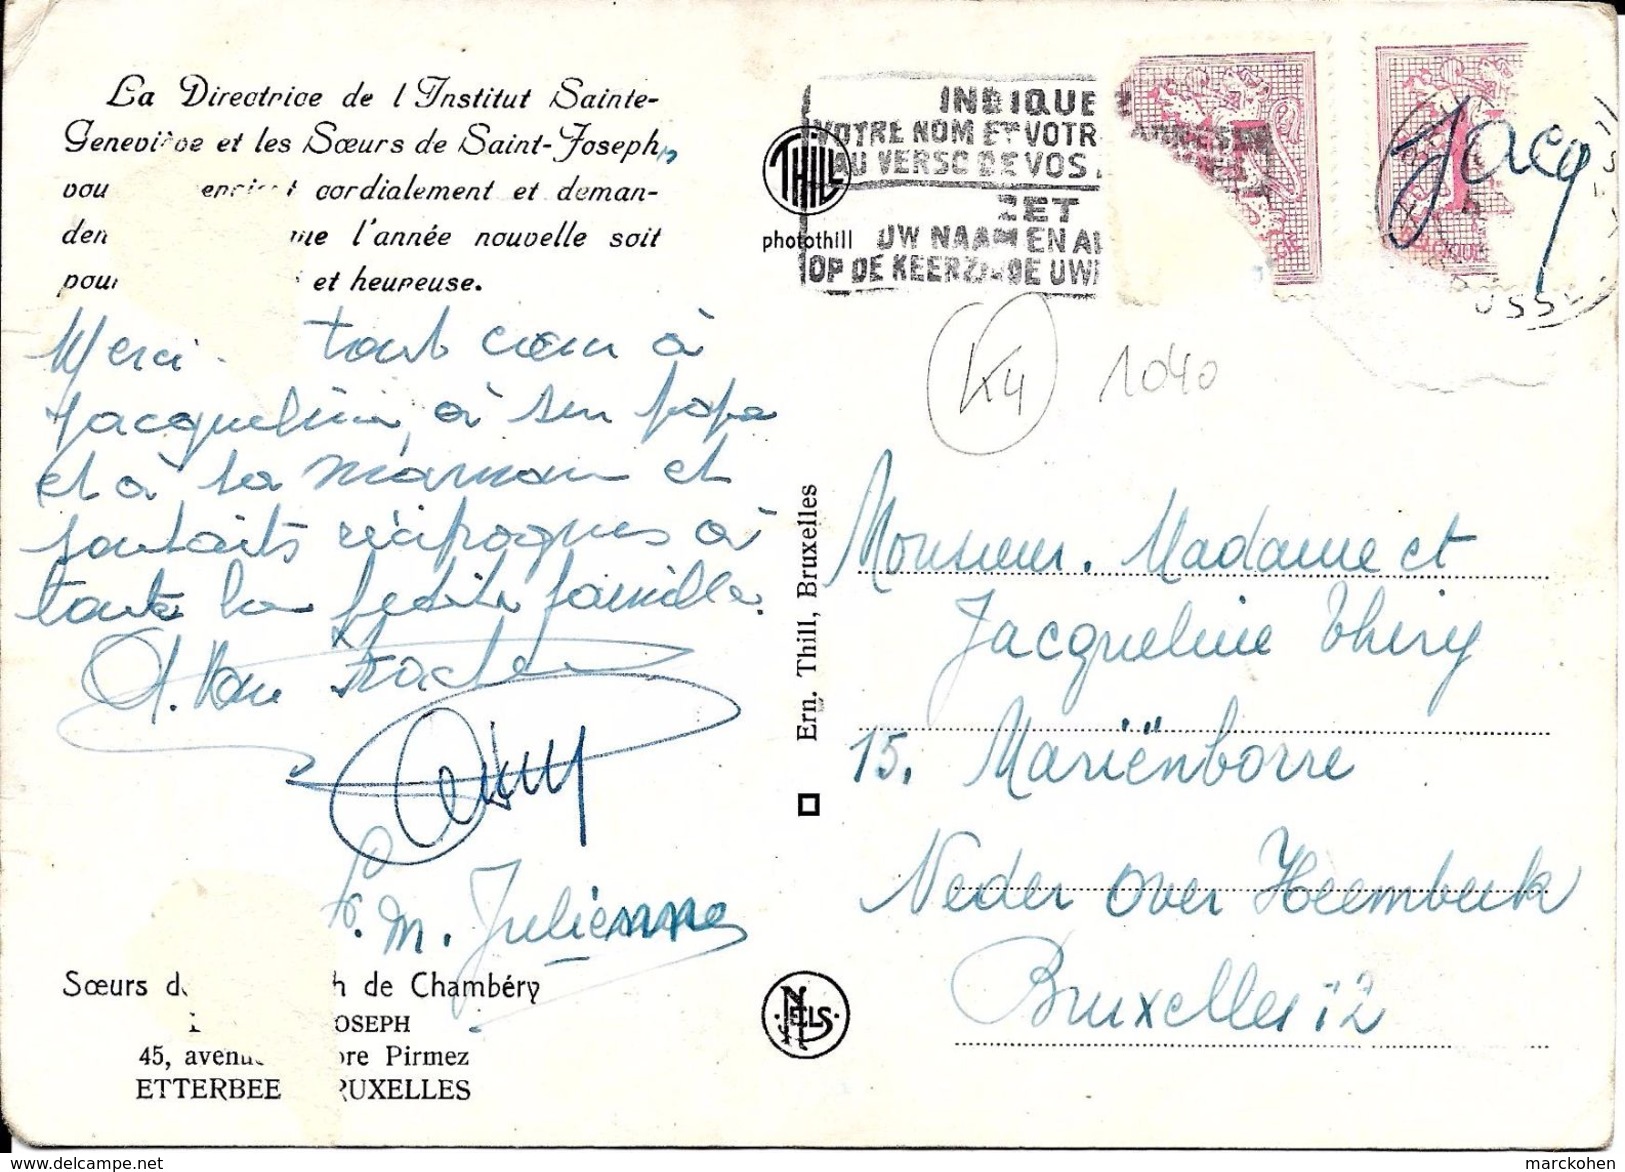 La Directrice de l'Institut Sainte-
Geneviève et les Sœurs de Saint-Joseph,
vou cordialement et deman-
den l'année nouvelle soit
pour et heureuse.
Merci tout cœur à
Jacqueline, à son papa
et à sa maman et
souhaits réciproques à
toute la petite famille.
M. Julienne
Sœurs d h de Chambéry
OSEPH
45, avenue ore Pirmez
ETTERBEE RUXELLES
THILL
photothill
INDIQUE
VOTRE NOM ET VOTR
AU VERSO DE VOS
ZET
UW NAAM EN A
OP DE KEERZIJDE UW
Jacq
1040
Ern. Thill, Bruxelles
NELS
Monsieur. Madame et
Jacqueline Thiry
15. Mariënborre
Neder over Heembeek
Bruxelles 12
marckohen